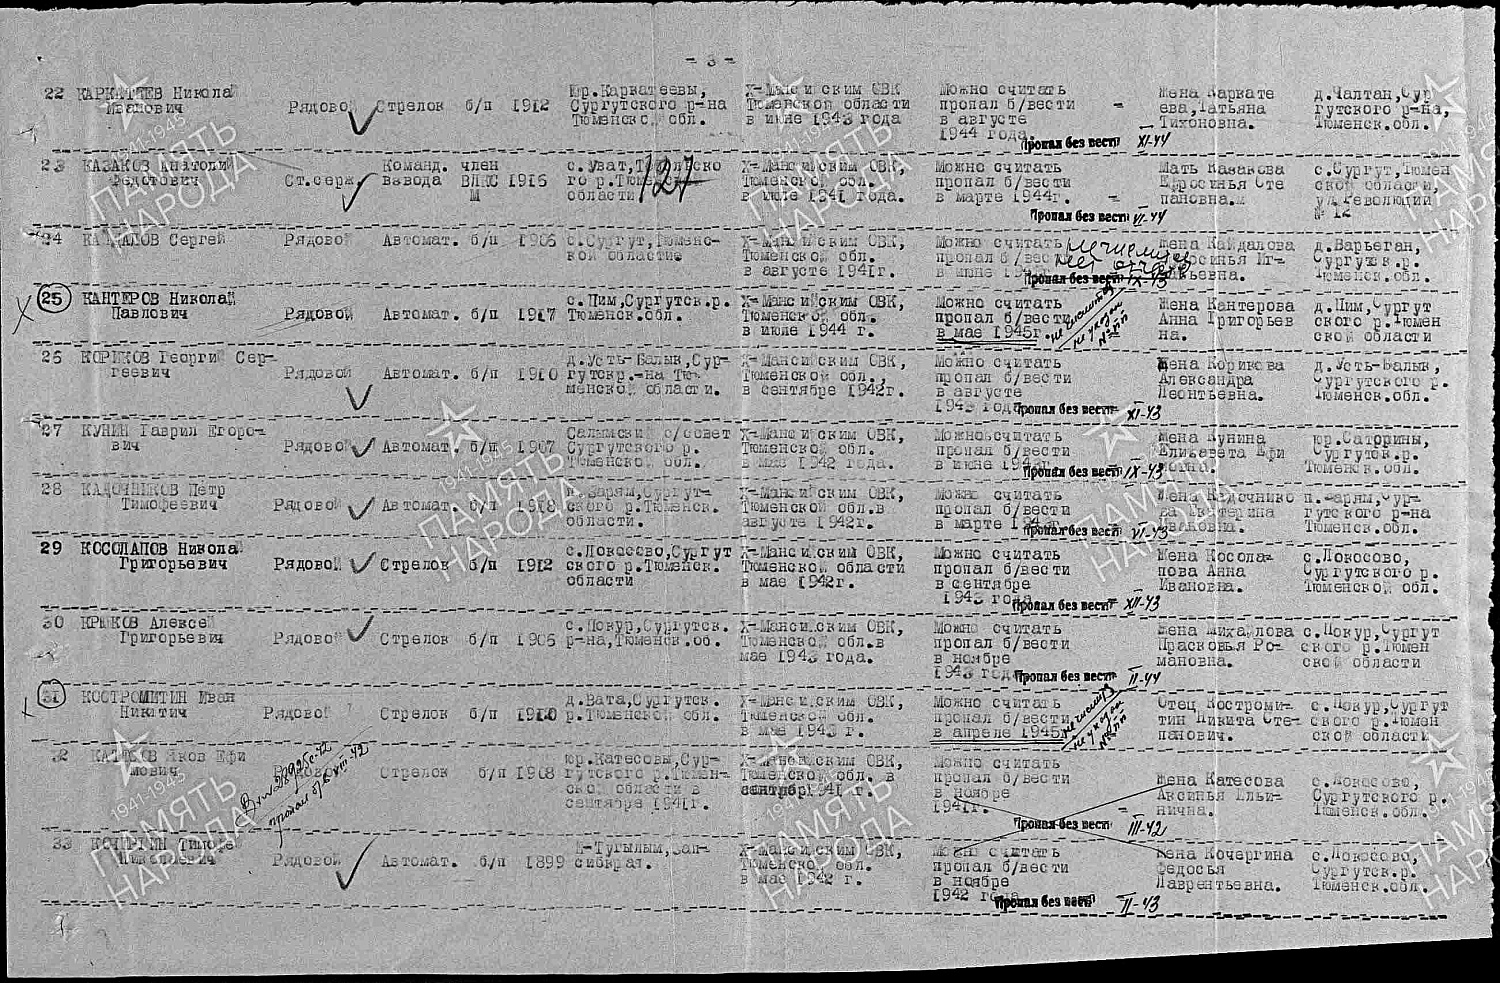 - 3 -
22 КАРКАТЕЕВ Николай Рядовой Стрелок б/п 1912 Юр.Каркатеевы, Х-Мансийским ОВК Можно считать Жена Каркате д.Чалтан,Сур
Иванович Сургутского р-на Тюменской области пропал б/вести - ева,Татьяна гутского р-на,
Тюменск. обл. в июне 1943 года в августе Тихоновна. Тюменск.обл.
1944 года. Пропал без вести XI-44
23 КАЗАКОВ Анатолий Команд. член с.Уват, Х-Мансийским ОВК, Можно считать Мать Казакова с.Сургут,Тюмен
Федотович Ст.серж. взвода ВЛКС 1916 го р.Тюменск. Тюменской обл. пропал б/вести Ефросинья Сте ской области,
М области 127 в июле 1941 года. в марте 1944г. - пановна. ул.Революции
Пропал без вести VI-44 № 12
24 Сергей Рядовой Автомат. б/п 1906 с.Сургут,Тюменс- Х-Мансийским ОВК, Можно считать Жена Кайдалова д.Варьеган,
кой области Тюменской обл. пропал б/вести Сургутск.р.
в августе 1941г. в июне Тюменск.обл.
Пропал без вести IX-43
25 КАНТЕРОВ Николай с.Пим,Сургутск.р. Х-Мансийским ОВК, Можно считать Жена Кантерова д.Пим,Сургут
Павлович Рядовой Автомат. б/п 1917 Тюменск.обл. Тюменской обл. пропал б/вести Анна Григорьев ского р.Тюмен
в июле 1944 г. в мае 1945г. на. ской области
не числится
не указан
№ пп
26 КОРИКОВ Георгий Сер- д.Усть-Балык,Сур- Х-Мансийским ОВК, Можно считать Жена Корикова д.Усть-Балык,
геевич Рядовой Автомат. б/п 1910 гутскр.-на Тю- Тюменской обл., пропал б/вести Александра Сургутского р.
менской области. в сентябре 1942г. в августе Леонтьевна. Тюменск.обл.
1943 года Пропал без вести XI-43
27 КУНИН Гаврил Егоро- Салымский с/совет Х-Мансийским ОВК, Можно считать Жена Кунина юр.Саторины,
вич Рядовой Автомат. б/п 1907 Сургутского р. Тюменской обл. пропал б/вести Елизавета Ефи Сургутск.р.
Тюменской обл. в мае 1942 года. в июне Пропал без вести IX-43 мовна. Тюменск.обл.
28 КАДОЧНИКОВ Петр п.Зарям,Сургут- Х-Мансийским ОВК, Можно считать Жена Кадочнико п.Зарям,Сур-
Тимофеевич Рядовой Автомат. б/п 1918 ского р.Тюменск. Тюменской обл.в пропал б/вести ва Екатерина гутского р-на
области. августе 1942г. в марте Пропал без вести VI-43 Ивановна. Тюменск.обл.
29 КОСОЛАПОВ Николай с.Локосово,Сургут Х-Мансийским ОВК, Можно считать Жена Косола- с.Локосово,
Григорьевич Рядовой Стрелок б/п 1912 ского р.Тюменск. Тюменской области пропал б/вести пова Анна Сургутского р.
области в мае 1942г. в сентябре Ивановна. Тюменской обл.
1943 года Пропал без вести XII-43
30 КРЮКОВ Алексей с.Покур,Сургутск. Х-Мансийским ОВК, Можно считать Жена Михайлова с.Покур,Сургут
Григорьевич Рядовой Стрелок б/п 1906 р-на,Тюменск.об. Тюменской обл.в пропал б/вести Прасковья Ро- ского р.Тюмен
мае 1943 года. в ноябре мановна. ской области
1943 года Пропал без вести II-44
31 КОСТРОМИТИН Иван д.Вата,Сургутск. Х-Мансийским ОВК, Можно считать Отец Костроми- с.Покур,Сургут
Никитич Рядовой Стрелок б/п 1910 р.Тюменской обл. Тюменской обл. пропал б/вести тин Никита Сте- ского р.Тюмен
в мае 1943 г. в апреле 1945г. панович. ской области
не числится
не указан
№ пп
32 КАТЕСОВ Яков Ефи юр.Катесовы,Сур- Х-Мансийским ОВК, Можно считать
мович Рядовой Стрелок б/п 1908 гутского р.Тюмен- Тюменской обл. в пропал б/вести Жена Катесова с.Локосово,
ской области в сентябр1941 г. в ноябре Аксинья Ильи- Сургутского р.
сентябре 1941г. 1941г. - нична. Тюменск.обл.
Пропал без вести III-42
33 КОЧЕРГИН Тимофей п-Тугылым,Зап- Х-Мансийским ОВК, Можно считать Жена Кочергина с.Локосово,
Николаевич Рядовой Автомат. б/п 1899 сибкрат. Тюменской обл. пропал б/вести Федосья Сургутск.р.
в мае 1942 г. в ноябре Лаврентьевна. Тюменск.обл.
1942 года Пропал без вести II-43
1941-1945
ПАМЯТЬ
НАРОДА